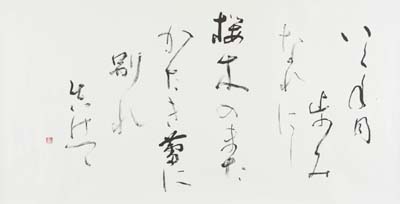 いく年月
歩み
なれにし
桜木のまた
かたき蕾に
別れ